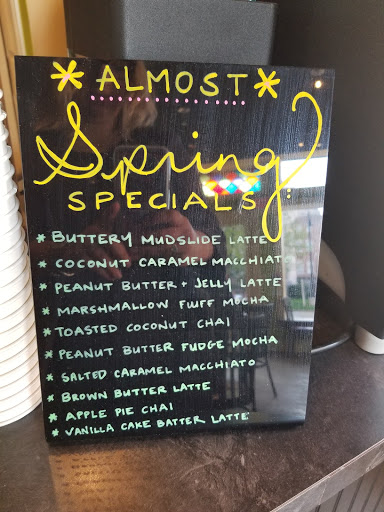 * ALMOST *
Spring
SPECIALS
* BUTTERY MUDSLIDE LATTE
* COCONUT CARAMEL MACCHIATO
* PEANUT BUTTER + JELLY LATTE
* MARSHMALLOW FLUFF MOCHA
* TOASTED COCONUT CHAI
* PEANUT BUTTER FUDGE MOCHA
* SALTED CARAMEL MACCHIATO
* BROWN BUTTER LATTE
* APPLE PIE CHAI
* VANILLA CAKE BATTER LATTE